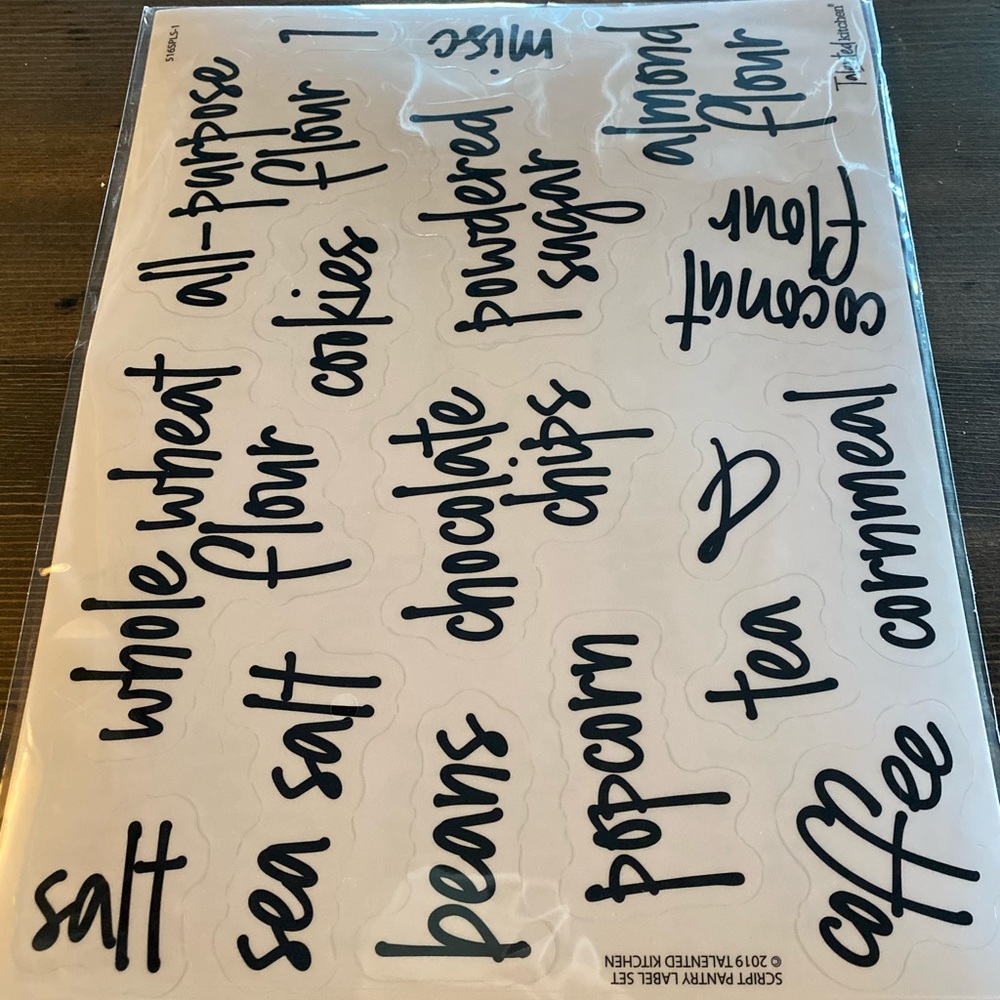 salt
whole wheat
flour
all-purpose
flour
sea salt
cookies
misc
beans
chocolate
chips
powdered
sugar
popcorn
tea
&
coconut
flour
almond
flour
coffee
cornmeal
Talented kitchen
S16SPLS-1
SCRIPT PANTRY LABEL SET
© 2019 TALENTED KITCHEN